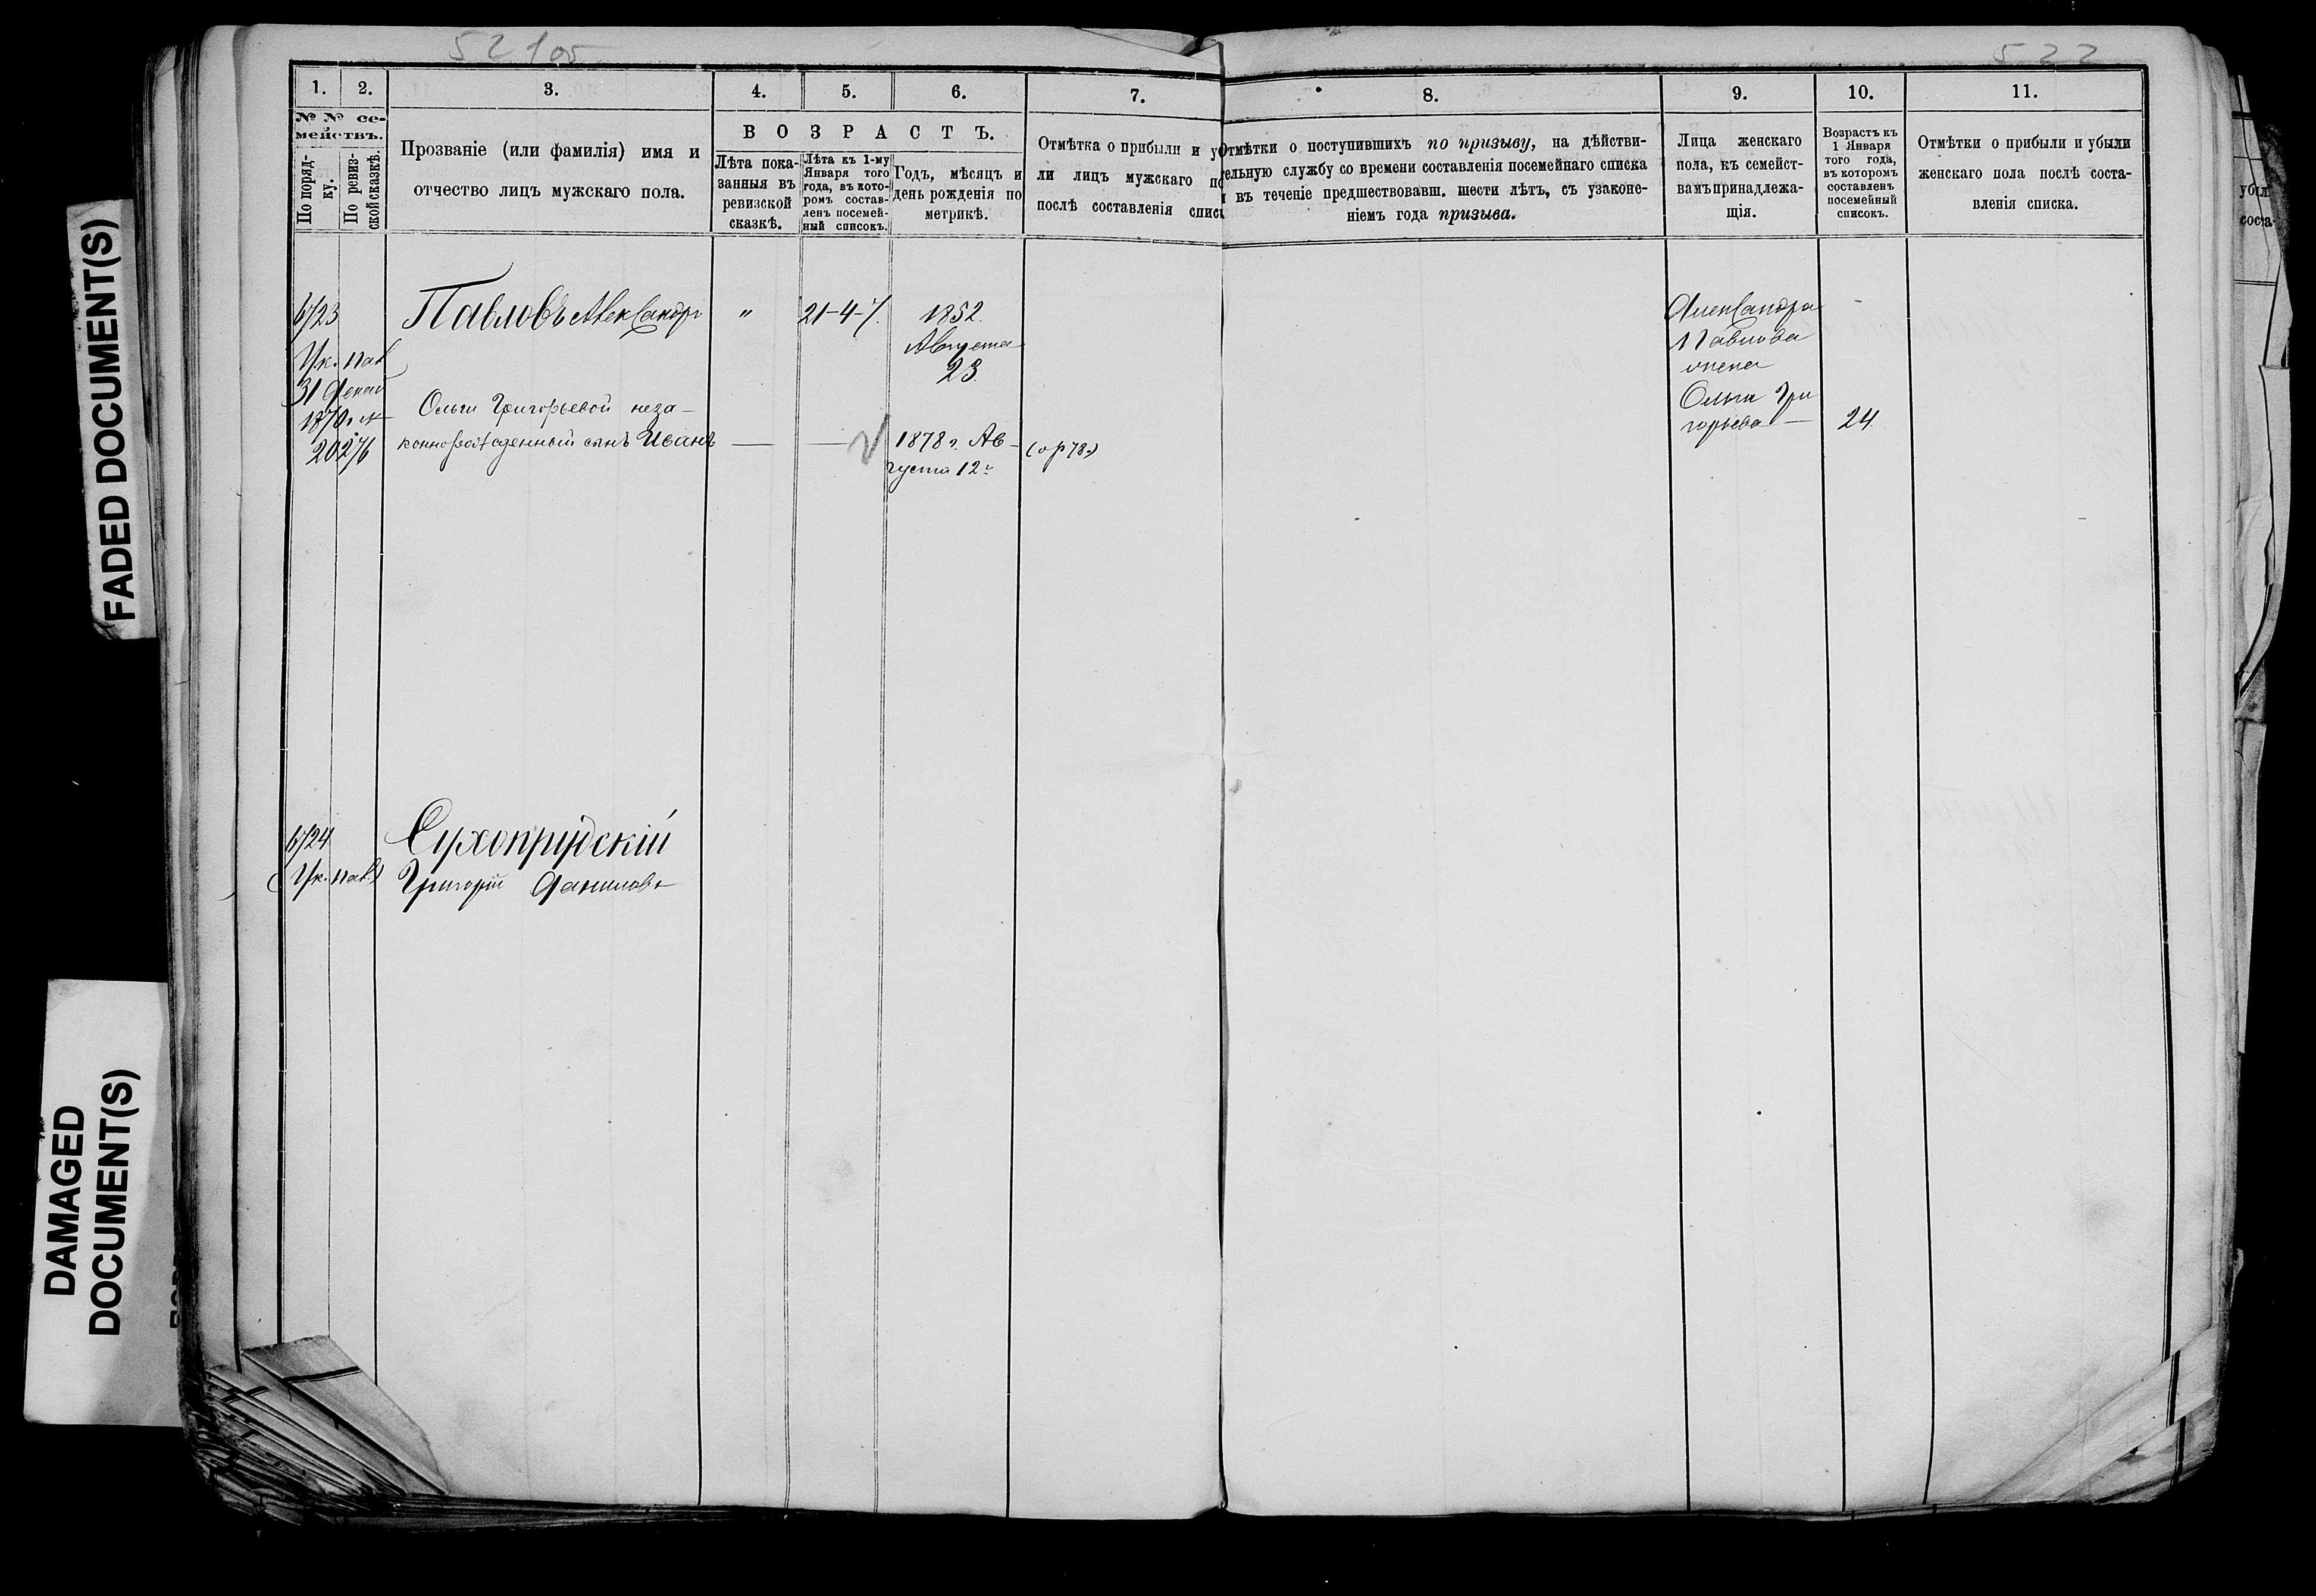 52 105
522
1. 2. 3. 4. 5. 6. 7. 8. 9. 10. 11.
№ № се-
мействъ.
По поряд-
ку.
По ревиз-
ской сказкѣ.
Прозваніе (или фамилія) имя и
отчество лицъ мужскаго пола.
ВОЗРАСТЪ.
Лѣта пока-
занныя въ
ревизской
сказкѣ.
Лѣта къ 1-му
Января того
года, въ кото-
ромъ состав-
ленъ посемей-
ный списокъ.
Годъ, мѣсяцъ и
день рожденія по
метрикѣ.
Отмѣтка о прибыли и у
ли лицъ мужскаго по
послѣ составленія спис
Отмѣтки о поступившихъ по призыву, на дѣйстви-
ельную службу со времени составленія посемейнаго списка
въ теченіе предшествовавш. шести лѣтъ, съ узаконе-
ніемъ года призыва.
Лица женскаго
пола, къ семейст-
вамъ принадлежа-
щія.
Возрастъ къ
1 Января
того года,
въ которомъ
составленъ
посемейный
списокъ.
Отмѣтки о прибыли и убыли
женскаго пола послѣ соста-
вленія списка.
убыл
соста-
Павловъ Александръ " 21-4-7. 1852.
Августа
23.
Ук. пал
31 Декаб
1870 г. №
20276
Ольги Григорьевой неза-
коннорожденный сынъ Иванъ
1878 г. Ав-
густа 12
Александра
Павлова
жена
Ольга Гри
горьева — 24.
Сухопрудскій
Ук. пал.
Григорій Даниловъ
FADED DOCUMENT(S)
DAMAGED
DOCUMENT(S)